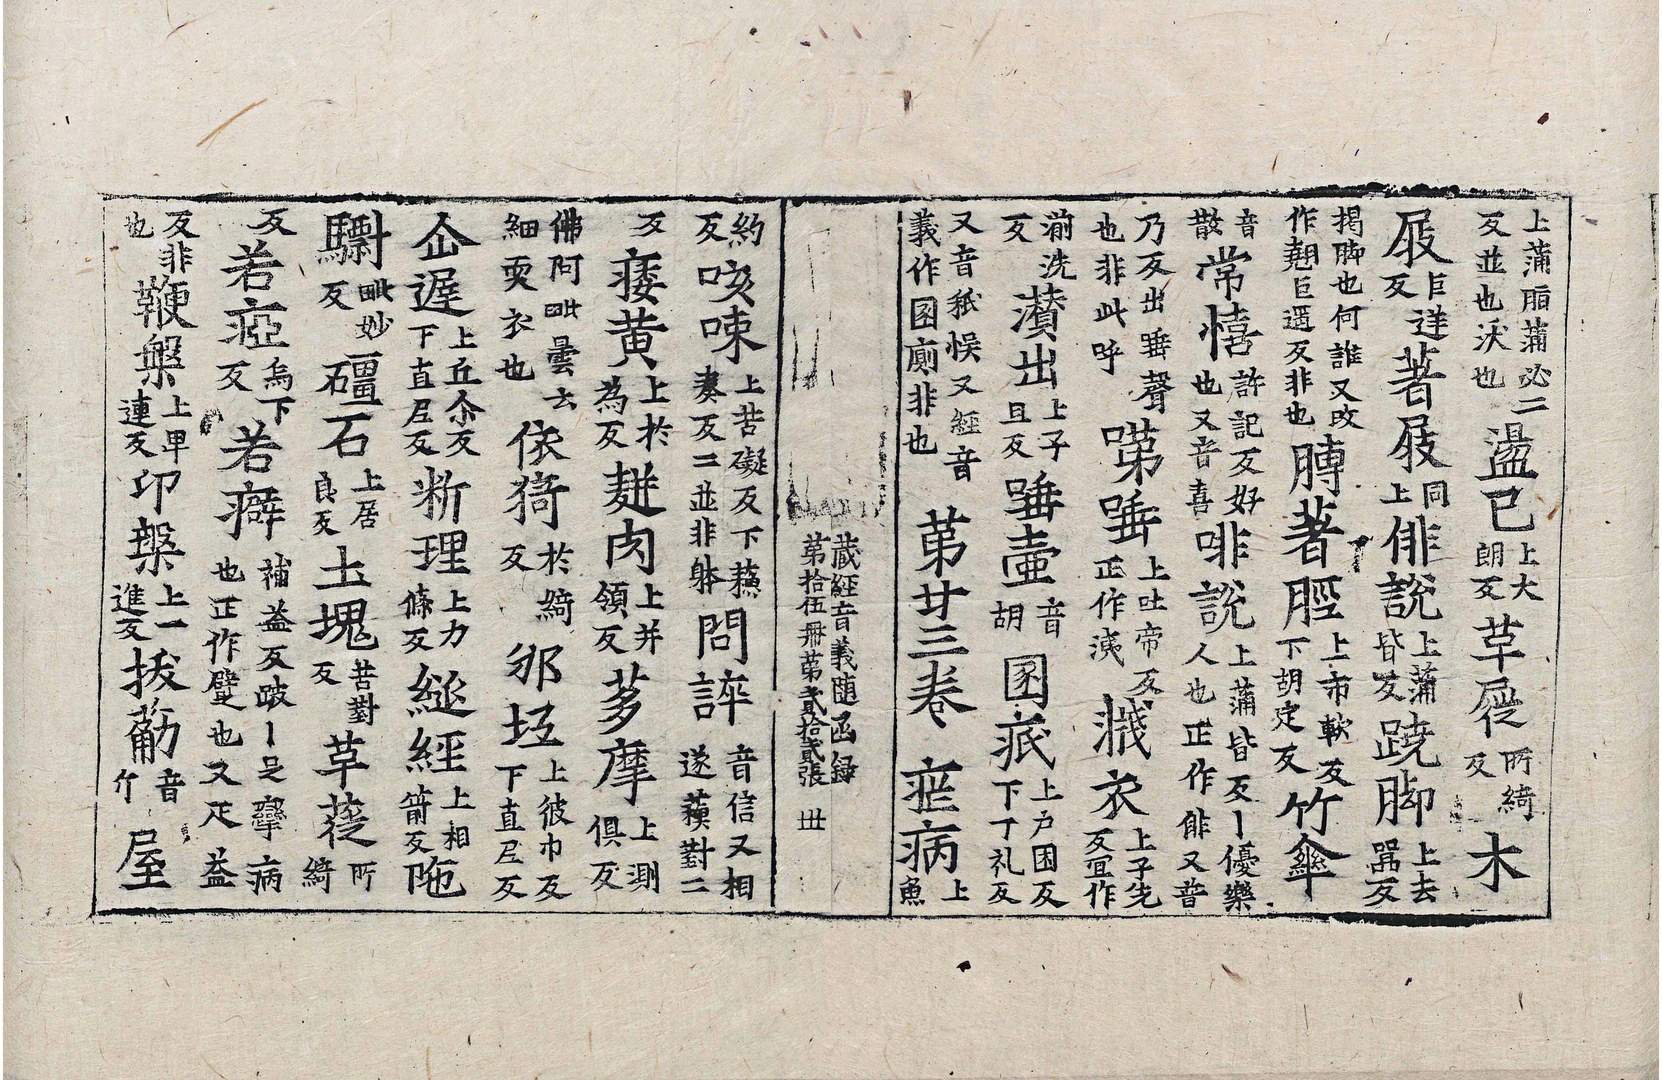 上蒲脂蒲必二反並也汱也盪已上大朗反草屣所綺反木
屐巨逆反著屐同上俳說上蒲皆反蹺脚上去嚣反
揭脚也何誰又改作翹巨遇反非也膊著脛上市軟反下胡定反竹傘
音散常憘許記反好也又音喜啡說上蒲皆反丨優樂人也正作俳又普
乃反出唾聲也非此呼㖒唾上吐帝反正作洟 衣上子先反冝作
湔洗反濽出上子且反唾壷音胡圂疧上戶困反下丁礼反
又音紙悮又經音義作圂廁非也第廿三卷 疟病上魚
藏經音義随函録第拾伍冊第貳拾貳張 丗
約反咳㖒上苦礙反下蘓奏反二並非躰問誶音信又相遂蘓對二
反痿黄上於為反䴵肉上并領反茤摩上測俱反
佛阿毗曇云細耎衣也依猗於綺反邠坁上彼巾反下直尼反
企遟上丘企反下直尼反断理上力條反縋經上相箭反陁
驫毗妙反礓石上居良反土塊苦對反草蓰所綺
反若瘂烏下反若癖補益反跛丨足癴病也正作躄也又疋益
反非也鞭槃上卑連反印槃上一進反拔葪音竹屋